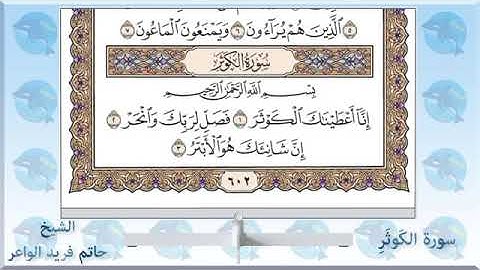 ٥ ٱلَّذِينَ هُمْ يُرَآءُونَ ٦ وَيَمْنَعُونَ ٱلْمَاعُونَ ٧
سُورَةُ الكَوْثَرِ
بِسْمِ ٱللَّهِ ٱلرَّحْمَٰنِ ٱلرَّحِيمِ
إِنَّآ أَعْطَيْنَٰكَ ٱلْكَوْثَرَ ١ فَصَلِّ لِرَبِّكَ وَٱنْحَرْ ٢
إِنَّ شَانِئَكَ هُوَ ٱلْأَبْتَرُ ٣
٦٠٢
سورة الكَوثَرِ
الشيخ
حاتم فريد الواعر